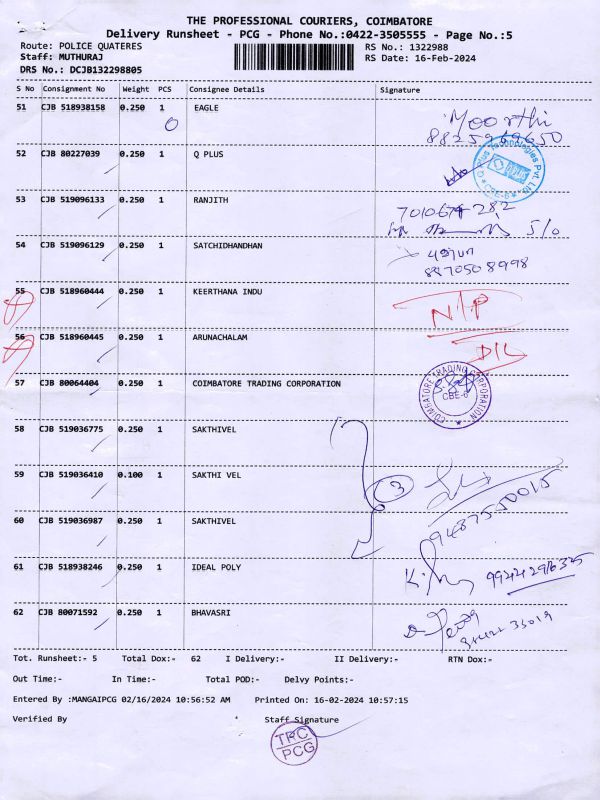 THE PROFESSIONAL COURIERS, COIMBATORE
Delivery Runsheet - PCG - Phone No.:0422-3505555 - Page No.:5
Route: POLICE QUATERES RS No.: 1322988
Staff: MUTHURAJ RS Date: 16-Feb-2024
DRS No.: DCJB132298805
S No Consignment No Weight PCS Consignee Details Signature
51 CJB 518938158 0.250 1 EAGLE Moorthi
0 8825969650
52 CJB 80227039 0.250 1 Q PLUS
Q Plus Technologies Pvt. Ltd. CBE-6
53 CJB 519096133 0.250 1 RANJITH
S/o
54 CJB 519096129 0.250 1 SATCHIDHANDHAN
8870508998
55 CJB 518960444 0.250 1 KEERTHANA INDU N/P
56 CJB 518960445 0.250 1 ARUNACHALAM D/L
57 CJB 80064404 0.250 1 COIMBATORE TRADING CORPORATION
COIMBATORE TRADING CORPORATION CBE-6
58 CJB 519036775 0.250 1 SAKTHIVEL
59 CJB 519036410 0.100 1 SAKTHI VEL 3
9487550015
60 CJB 519036987 0.250 1 SAKTHIVEL
61 CJB 518938246 0.250 1 IDEAL POLY
62 CJB 80071592 0.250 1 BHAVASRI
Tot. Runsheet:- 5 Total Dox:- 62 I Delivery:- II Delivery:- RTN Dox:-
Out Time:- In Time:- Total POD:- Delvy Points:-
Entered By :MANGAIPCG 02/16/2024 10:56:52 AM Printed On: 16-02-2024 10:57:15
Verified By Staff Signature
TPC
PCG